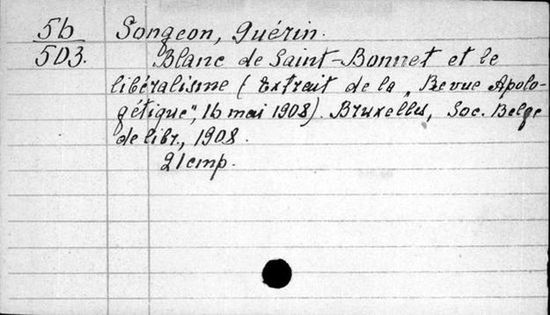 56 Songeon, Guérin.
503. Blanc de Saint-Bonnet et le
libéralisme (Extrait de la „Revue Apolo-
gétique", 16 mai 1908). Bruxelles, Soc. Belge
de libr., 1908.
21cmp.